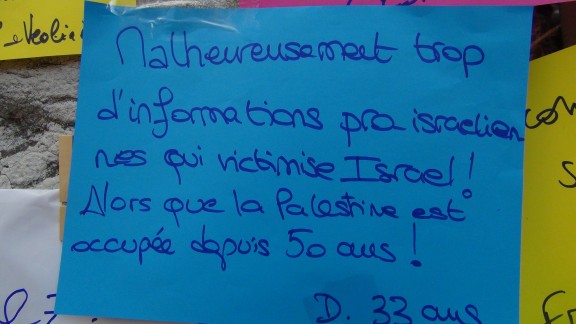 Malheureusement trop
d'informations pro israelien
nes qui victimise Israel !
Alors que la Palestine est
occupée depuis 50 ans !
D. 33 ans